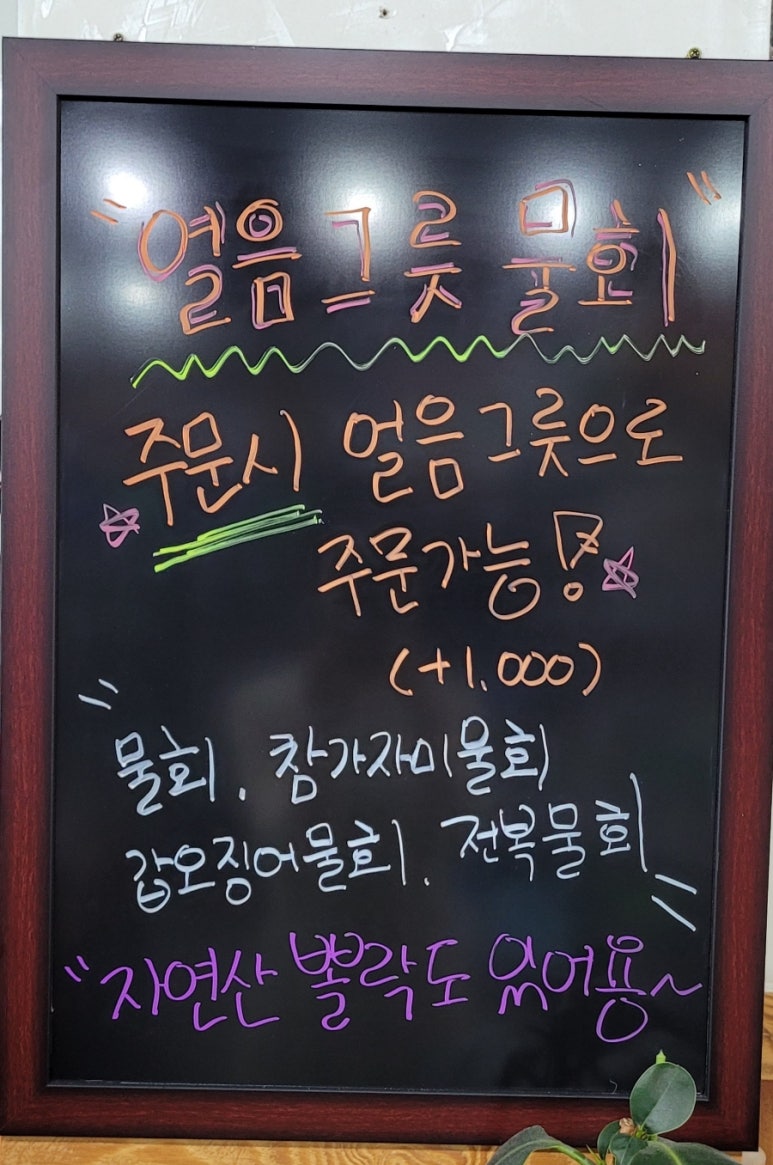 "얼음그릇 물회"
주문시 얼음그릇으로
주문가능!
(+1.000)
"물회. 참가자미물회
갑오징어물회. 전복물회"
"자연산 뽈락도 있어용~